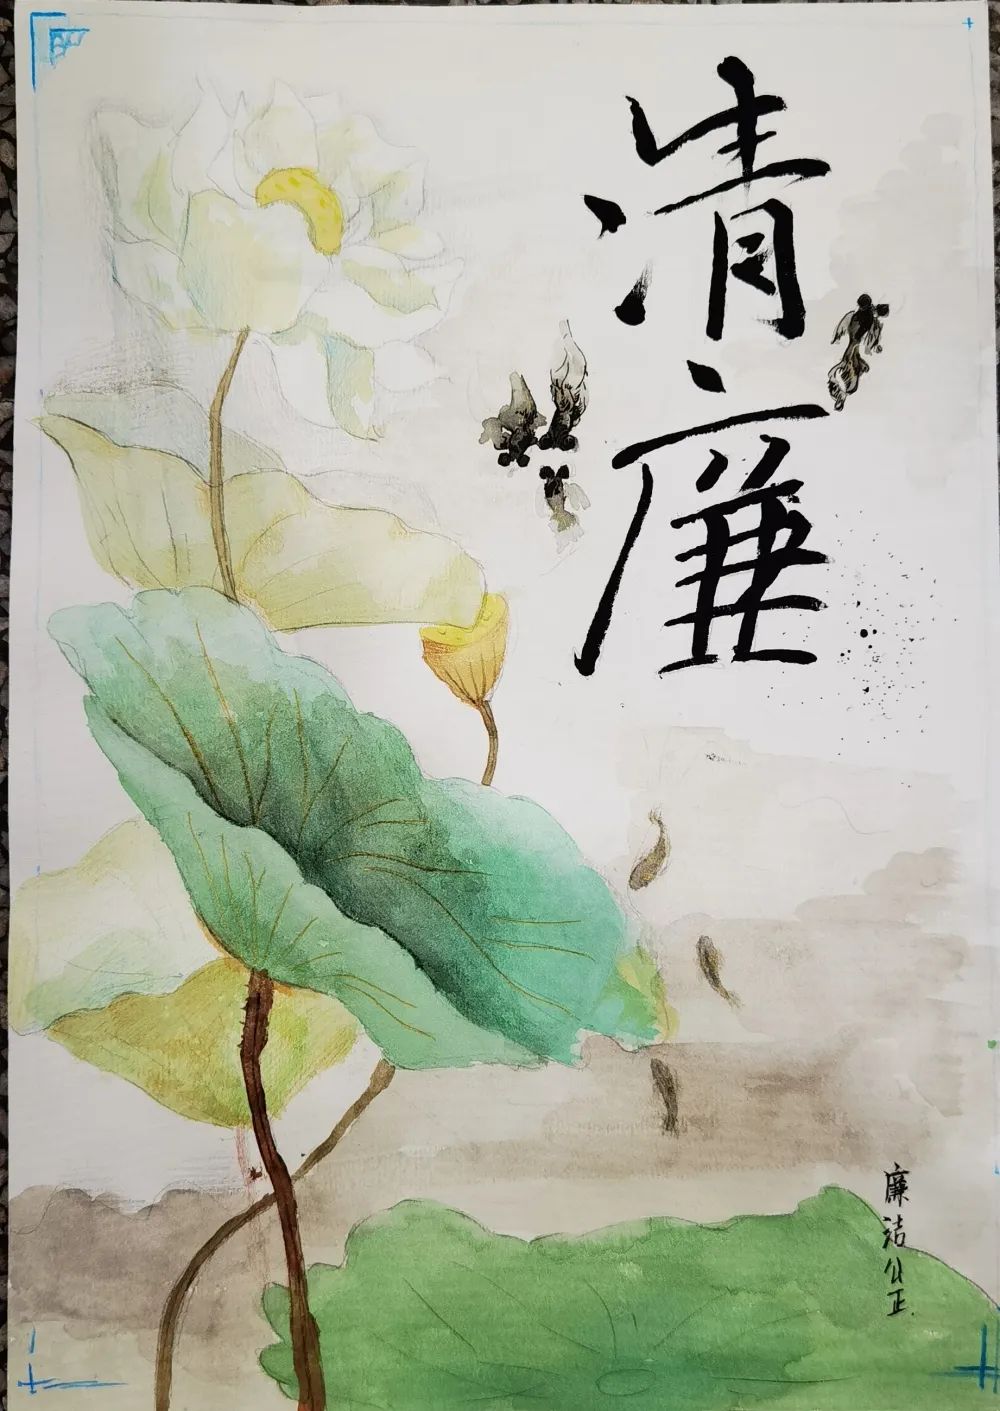 清廉
廉洁公正.